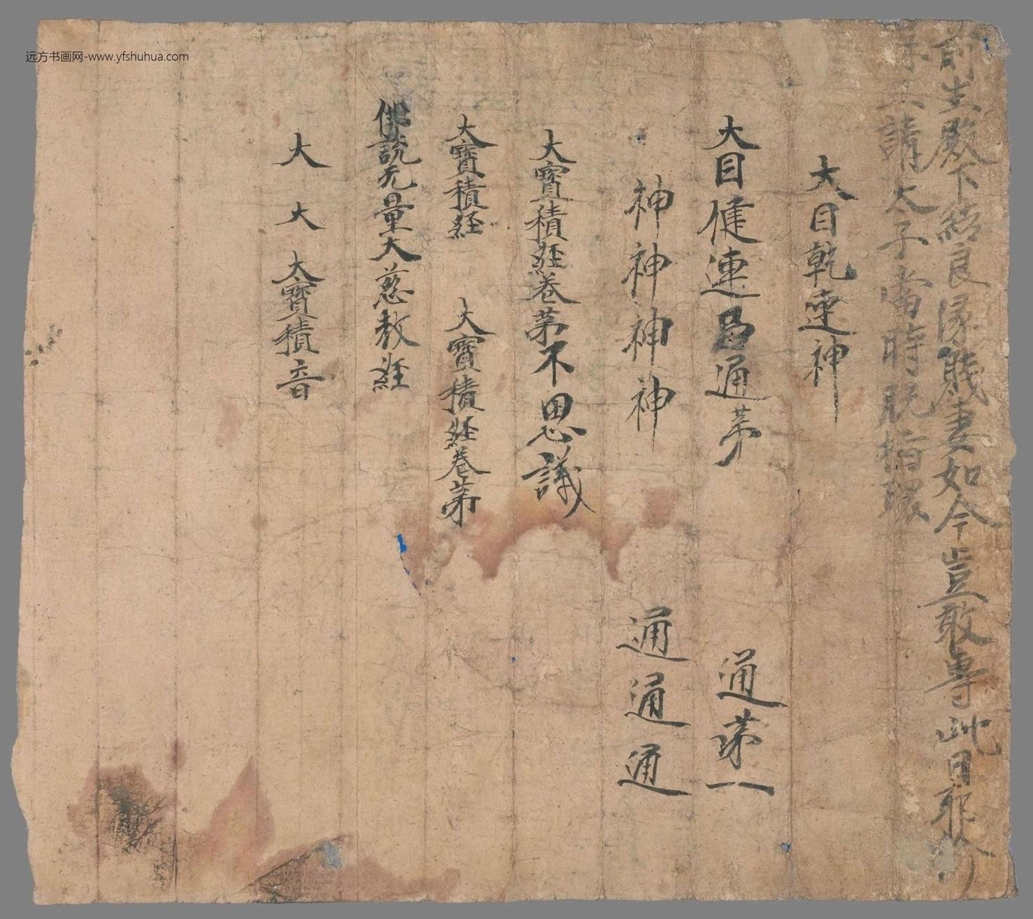 前生殿下結良緣賤妻如今豈敢專此日耶
請太子當時脫指環
大目乾連神
大目健連 通第
通第一
神神神神
通通通
大寶積經卷第不思議
大寶積経
大寶積経卷第
佛說无量大慈教經
大 大 大寶積音
远方书画网-www.yfshuhua.com